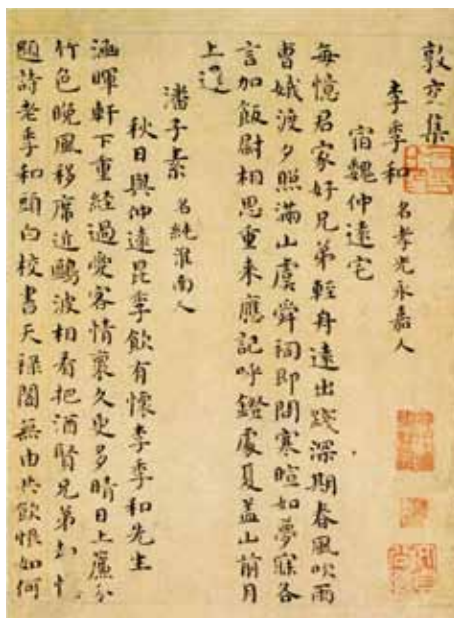 敦交集
李季和 名孝光永嘉人
宿魏仲遠宅
每憶君家好兄弟輕身遠出踐深期春風吹雨
曹娥渡夕照滿山虞舜祠即問寒暄如夢寐各
言加飯尉相思重来應記呼鐙處夏盖山前月
上遲
潘子素 名純淮南人
秋日與仲遠昆季飲有懷李季和先生
涵暉軒下重經過愛客情裏久更多晴日上簾分
竹色晚風移席近鷗波相看把酒賢兄弟却
題詩老季和頭白校書天禄閣無由共飲恨如何